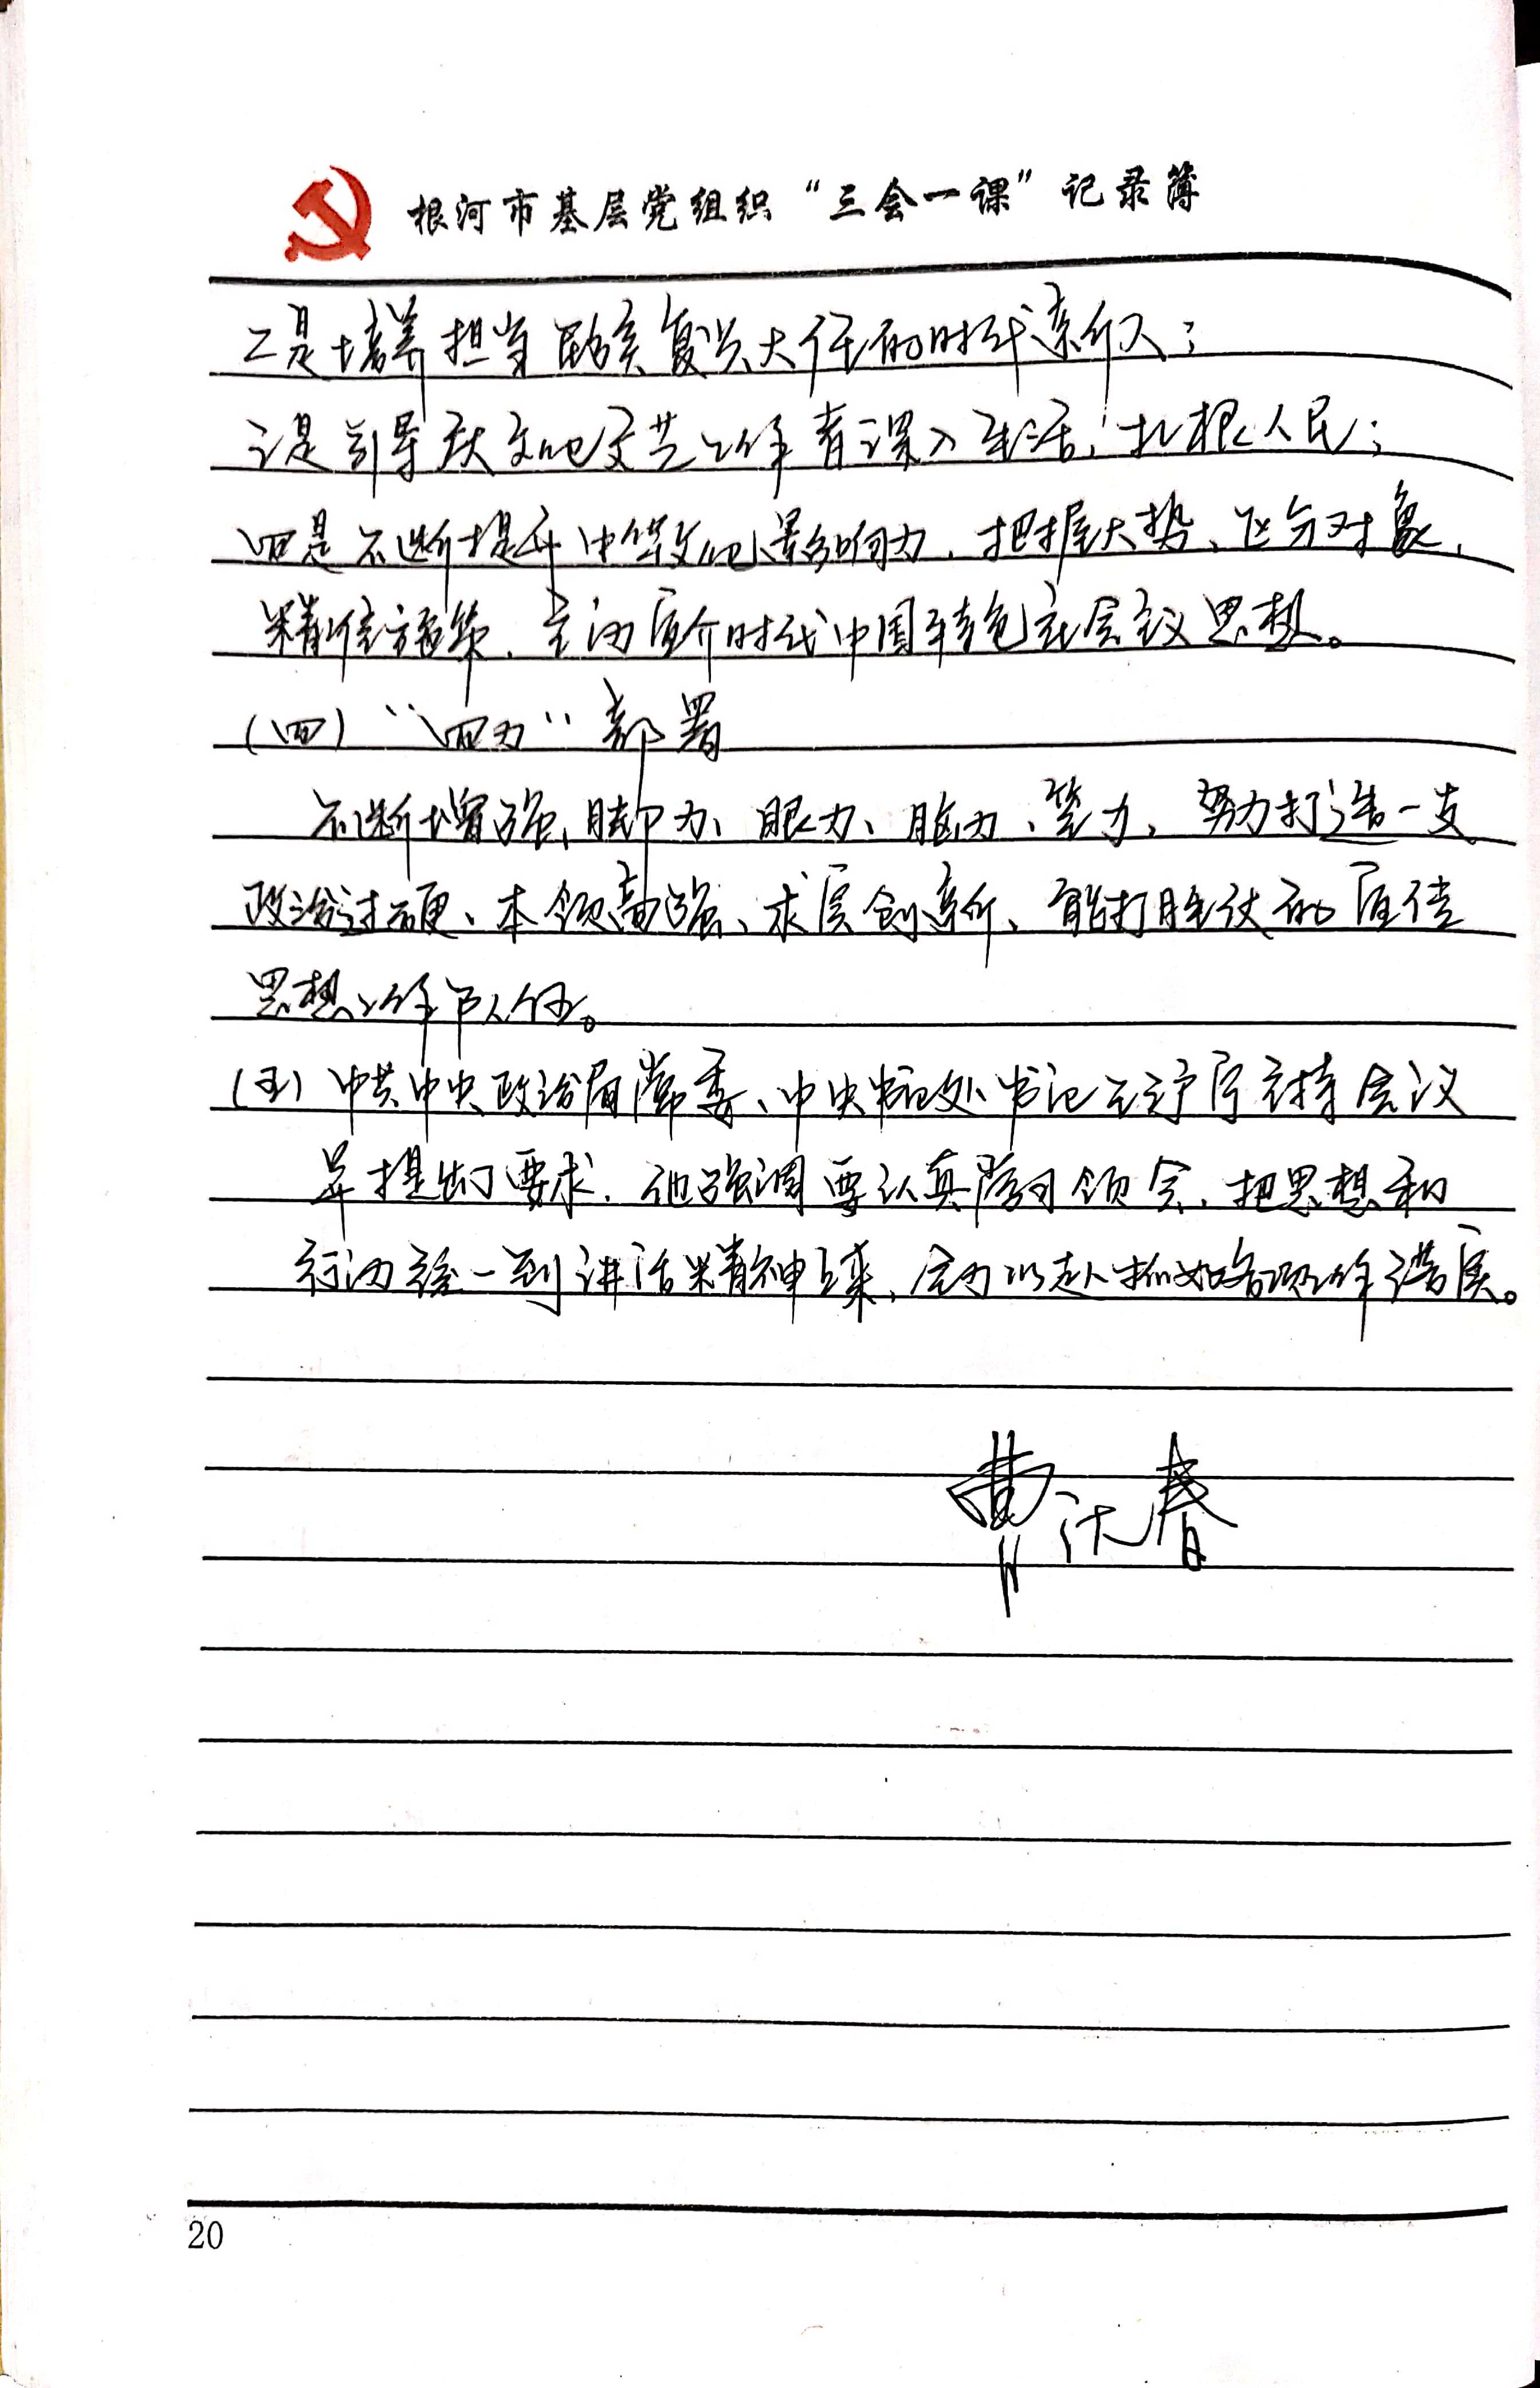 根河市基层党组织“三会一课”记录簿
二是培养担当民族复兴大任的时代新人；
三是引导广大文化文艺工作者深入生活，扎根人民；
四是不断提升中华文化影响力，把握大势、区分对象、
精准施策，主动宣介新时代中国特色社会主义思想。
（四）“四力”部署
不断增强脚力、眼力、脑力、笔力，努力打造一支
政治过硬、本领高强、求实创新、能打胜仗的宣传
思想工作队伍。
（五）中共中央政治局常委、中央书记处书记王沪宁主持会议
并提出了要求，他强调要认真学习领会，把思想和
行动统一到讲话精神上来，全力以赴抓好各项工作落实。
春
20